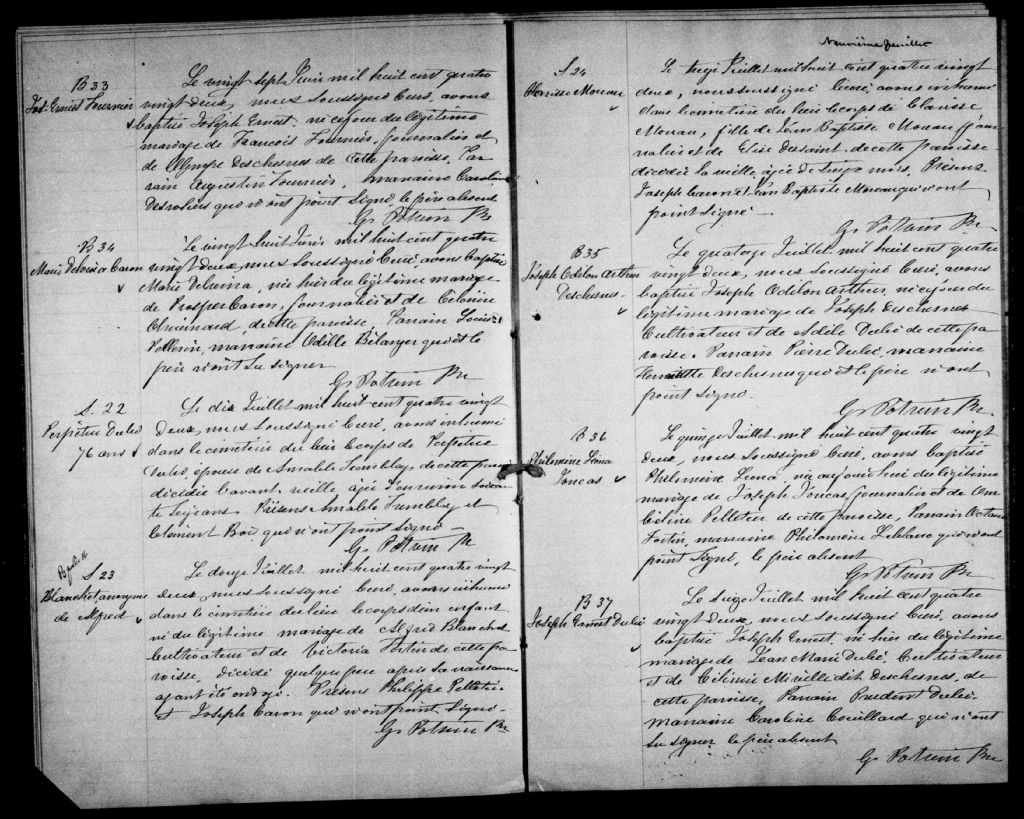 B 33
Jos. Ernest Fournier
Le vingt sept Juin mil huit cent quatre
vingt deux, nous soussigné Curé, avons
baptisé Joseph Ernest, né ce jour du légitime
mariage de François Fournier, journalier et
de Olympe Deschesnes de cette paroisse. Par
rain Augustin Fournier, marraine Caroline
Desrosiers qui n'ont point signé, le père absent
G. Potvin Ptre
B 34
Marie Delvina Caron
Le vingt huit Juin mil huit cent quatre
vingt deux, nous soussigné Curé, avons baptisé
Marie Delvina, née hier du légitime mariage
de Prosper Caron, journalier et de Célanire
Chouinard de cette paroisse. Parrain Louis
Pellerin, marraine Odille Bélanger qui et le
père n'ont su signer
G. Potvin Ptre
S. 22
Perpétue Dubé
76 ans
Le dix Juillet mil huit cent quatre vingt
deux, nous soussigné Curé, avons inhumé
dans le cimetière du lieu le corps de Perpétue
Dubé épouse de Amable Tremblay de cette paroisse
décédée l'avant veille, âgée d'environ soixan
te seize ans. Présens Amable Tremblay et
Clément Boï qui n'ont point signé
G. Potvin Ptre
S 23
Blanchet anonyme
de Alfred
Le douze Juillet mil huit cent quatre vingt
deux, nous soussigné Curé, avons inhumé
dans le cimetière du lieu le corps d'un enfant
né du légitime mariage de Alfred Blanchet
Cultivateur et de Victoria Fortin de cette pa
roisse, décédé quelque peu après sa naissance
ayant été ondoyé. Présens Philippe Pelletier
et Joseph Caron qui n'ont point signé.
G. Potvin Ptre
Neuvième feuillet
S 24
Clarisse Moreau
Le treize Juillet mil huit cent quatre vingt
deux, nous soussigné Curé, avons inhumé
dans le cimetière du lieu le corps de Clarisse
Moreau, fille de Jean Baptiste Moreau jour
nalier et de Elise Dessaint de cette paroisse
décédée la veille, âgée de treize mois. Présens
Joseph Caron et Jean Baptiste Moreau qui n'ont
point signé
G. Potvin Ptre
B 35
Joseph Odilon Arthur
Deschesnes
Le quatorze Juillet mil huit cent quatre
vingt deux, nous soussigné Curé, avons
baptisé Joseph Odilon Arthur, né ce jour du
légitime mariage de Joseph Deschesnes
Cultivateur et de Adèle Dubé de cette pa
roisse. Parrain Pierre Dubé, marraine
Henriette Deschesnes qui et le père n'ont
point signé.
G. Potvin Ptre
B 36
Philomène Léona
Joncas
Le quinze Juillet mil huit cent quatre vingt
deux, nous soussigné Curé, avons baptisé
Philomène Léona, née aujourd'hui du légitime
mariage de Joseph Joncas, journalier et de Om
béline Pelletier de cette paroisse, Parrain Octave
Fortin, marraine Philomène Leblanc qui n'ont
point signé, le père absent
G. Potvin Ptre
B 37
Joseph Ernest Dubé
Le seize Juillet mil huit cent quatre
vingt deux, nous soussigné Curé, avons
baptisé Joseph Ernest, né hier du légitime
mariage de Jean Marie Dubé, Cultivateur
et de Célinie Miville dit Deschesnes, de
cette paroisse, Parrain Prudent Dubé
marraine Caroline Couillard qui n'ont
su signer le père absent
G. Potvin Ptre